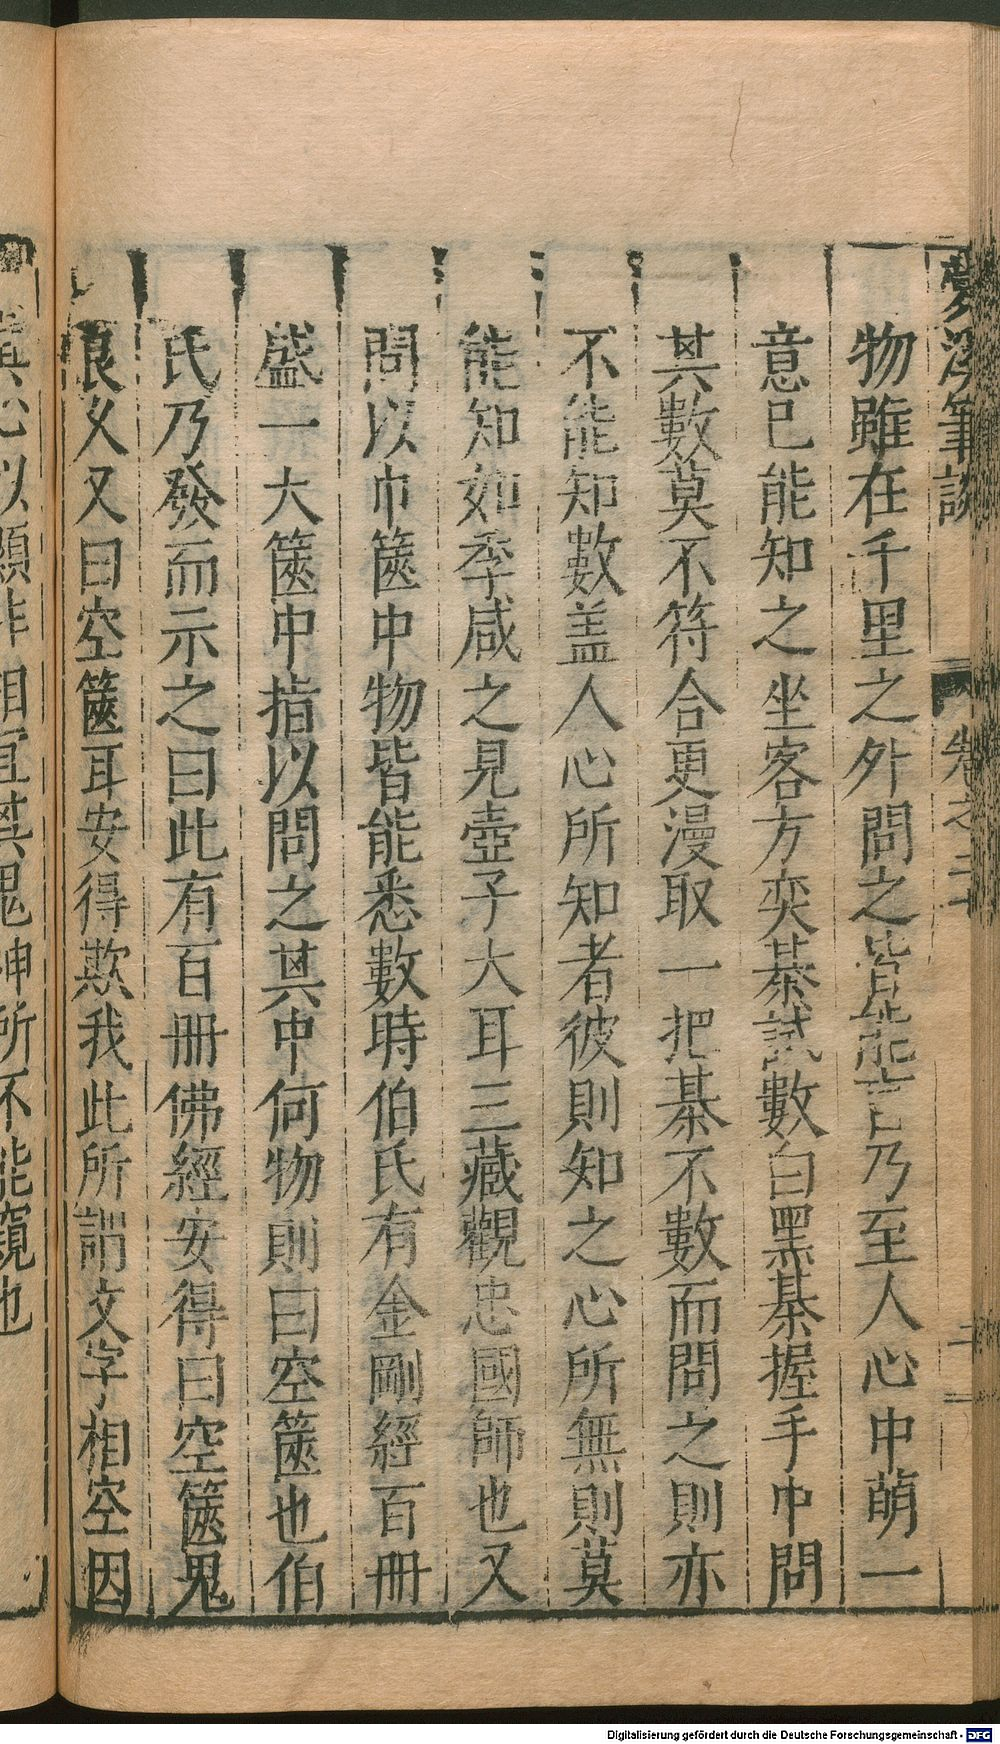 夢溪筆談 卷之二十 二
物雖在千里之外問之皆能言乃至人心中萌一
意已能知之坐客方奕棊試數白黑棊握手中問
其數莫不符合更漫取一把棊不數而問之則亦
不能知數盖人心所知者彼則知之心所無則莫
能知如季咸之見壺子大耳三藏觀忠國師也又
問以巾篋中物皆能悉數時伯氏有金剛經百冊
盛一大篋中指以問之其中何物則曰空篋也伯
氏乃發而示之曰此有百冊佛經安得曰空篋鬼
良久又曰空篋耳安得欺我此所謂文字相空因
真心以顯非相宜其鬼神所不能窺也
Digitalisierung gefördert durch die Deutsche Forschungsgemeinschaft - DFG